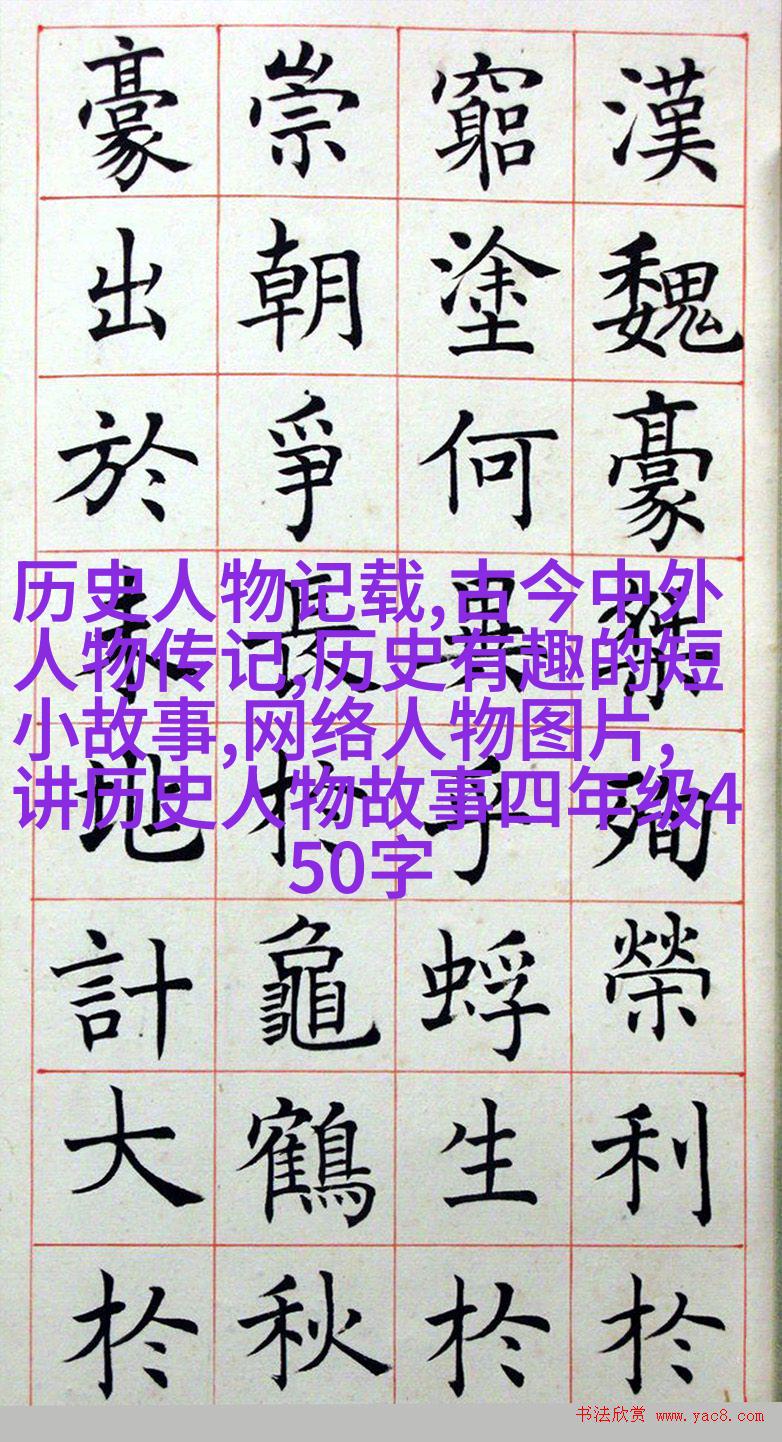 漢魏豪殉榮利於
窮塗何異乎蜉生於
崇朝爭長於龜鶴秋
豪出於地計大於
历史人物记载,古今中外
人物传记,历史有趣的短
小故事,网络人物图片,
讲历史人物故事四年级4
50字
书法欣赏 www.yac8.com